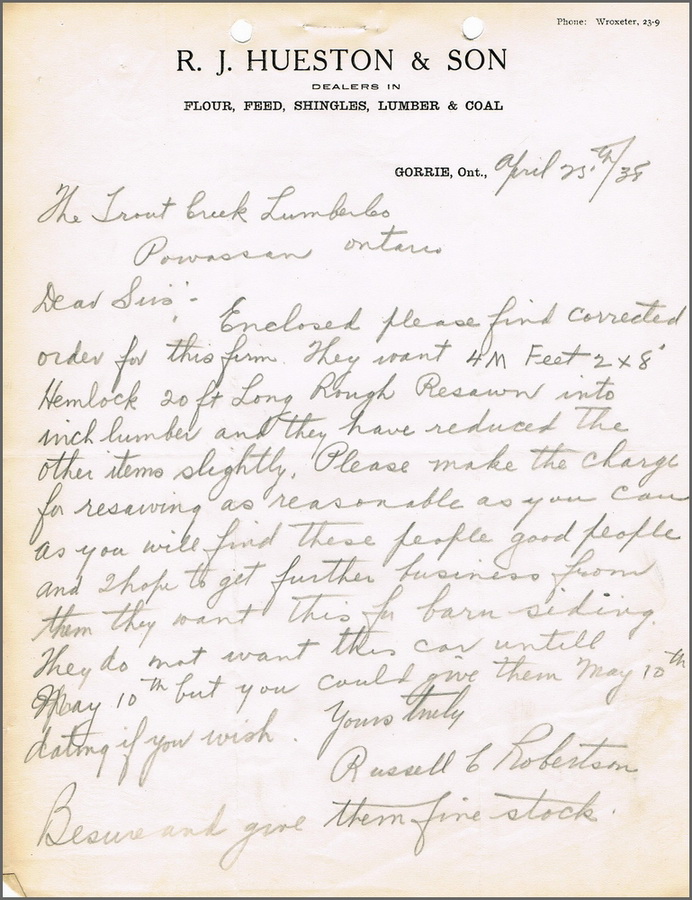 Phone: Wroxeter, 23-9
R. J. HUESTON & SON
DEALERS IN
FLOUR, FEED, SHINGLES, LUMBER & COAL
GORRIE, Ont., April 25th/38
The Trout Creek Lumber Co
Powassan Ontario
Dear Sirs:-
Enclosed please find corrected
order for this firm. They want 4M Feet 2x8"
Hemlock 20 ft Long Rough Resawn into
inch lumber and they have reduced the
other items slightly. Please make the charge
for resawing as reasonable as you can
as you will find these people good people
and I hope to get further business from
them they want this for barn siding.
They do not want this car untill
May 10th but you could give them May 10th
dating if you wish.
Yours truly
Russell C Robertson
Besure and give them fine stock.